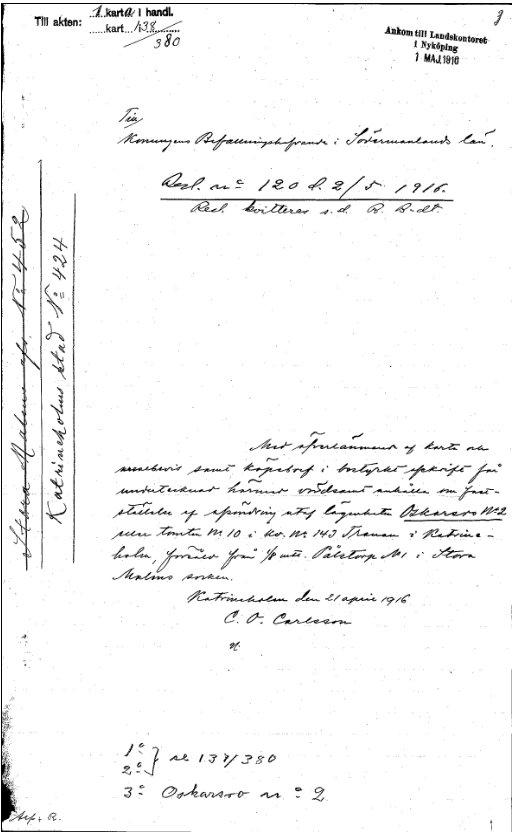 Till akten: 1 karta i handl.
kart 138
380
3
Ankom till Landskontoret
i Nyköping
1 MAJ 1916
Till
Konungens Befallningshafvande i Södermanlands län.
Resl. nº 120 d. 2/5 1916.
Resl. kvitteras s.d.
Stora Malms Nº 452
Katrineholms stad Nº 424
Med öfverlämnand af karta och
samt köpebref i bestyrkt afskrift får
undertecknad härmed vördsamt anhålla om fast-
ställelse af afsöndring utaf lägenheten Oskarsro Nº 2
tomten Nr 10 i kv. Nr 143 Tranan i Katrine-
holm, från 1/8 mtl. Nr 1 i Stora
Malms socken.
Katrineholm den 21 april 1916
C. O. Carlsson
1º
2º } se 138/380
3º Oskarsro nº 2